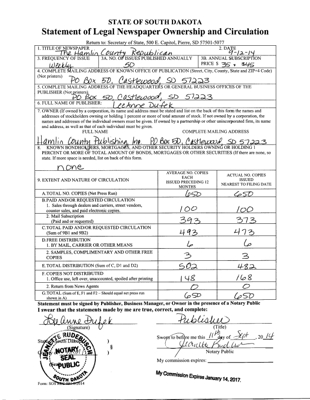 STATE OF SOUTH DAKOTA
Statement of Legal Newspaper Ownership and Circulation
Return to: Secretary of State, 500 E. Capitol, Pierre, SD 57501-5077
1. TITLE OF NEWSPAPER
The Hamlin County Republican
2. DATE
9-12-14
3. FREQUENCY OF ISSUE
Weekly
3A. NO. OF ISSUES PUBLISHED ANNUALLY
50
3B. ANNUAL SUBSCRIPTION
PRICE $ 35 + $45
4. COMPLETE MAILING ADDRESS OF KNOWN OFFICE OF PUBLICATION (Street, City, County, State and ZIP+4 Code)
(Not printers)
PO Box 50, Castlewood, SD 57223
5. COMPLETE MAILING ADDRESS OF THE HEADQUARTERS OR GENERAL BUSINESS OFFICES OF THE
PUBLISHER (Not printers)
PO Box 50, Castlewood, SD 57223
6. FULL NAME OF PUBLISHER:
LeeAnne Dufek
7. OWNER (If owned by a corporation, its name and address must be stated and
addresses of stockholders owning or holding 1 percent or more of total amount of stock. If not owned by a corporation, the
names and addresses of the individual owners must be given. If owned by a partnership or other unincorporated firm, its name
and address, as well as that of each individual must be given.
FULL NAME
COMPLETE MAILING ADDRESS
Hamlin County Publishing Inc PO Box 50, Castlewood SD 57223
8. KNOWN BONDHOLDERS, MORTGAGES, AND OTHER SECURITY HOLDERS OWNING OR HOLDING 1
PERCENT OR MORE OF TOTAL AMOUNT OF BONDS, MORTGAGES OR OTHER SECURITIES (If there are none, so
state. If more space is needed, list on back of this form.
none
9. EXTENT AND NATURE OF CIRCULATION
AVERAGE NO. COPIES
EACH
ISSUED PRECEDING 12
MONTHS
ACTUAL NO. COPIES
ISSUED
NEAREST TO FILING DATE
A. TOTAL NO. COPIES (Net Press Run)
650
650
B. PAID AND/OR REQUESTED CIRCULATION
1. Sales through dealers and carriers, street vendors,
counter sales, and paid electronic copies.
100
100
2. Mail Subscription
(Paid and or requested)
393
373
C. TOTAL PAID AND/OR REQUESTED CIRCULATION
(Sum of 9B1 and 9B2)
493
473
D. FREE DISTRIBUTION
1. BY MAIL, CARRIER OR OTHER MEANS
6
6
2. SAMPLES, COMPLIMENTARY AND OTHER FREE
COPIES
3
3
E. TOTAL DISTRIBUTION (Sum of C, D1 and D2)
502
482
F. COPIES NOT DISTRIBUTED
1. Office use, left over, unaccounted, spoiled after printing
148
168
2. Return from News Agents
0
0
G. TOTAL (Sum of E, F1 and F2 - Should equal net press run
shown in A)
650
650
Statement must be signed by Publisher, Business Manager, or Owner in the presence of a Notary Public
I swear that the statements made by me are true, correct, and complete:
LeeAnne Dufek
(Signature)
Publisher
(Title)
State of South Dakota
Sworn to before me this 11th day of Sept 20 14
NOTARY
SEAL
PUBLIC
SOUTH DAKOTA
Notary Public
My commission expires:
My Commission Expires January 14, 2017.